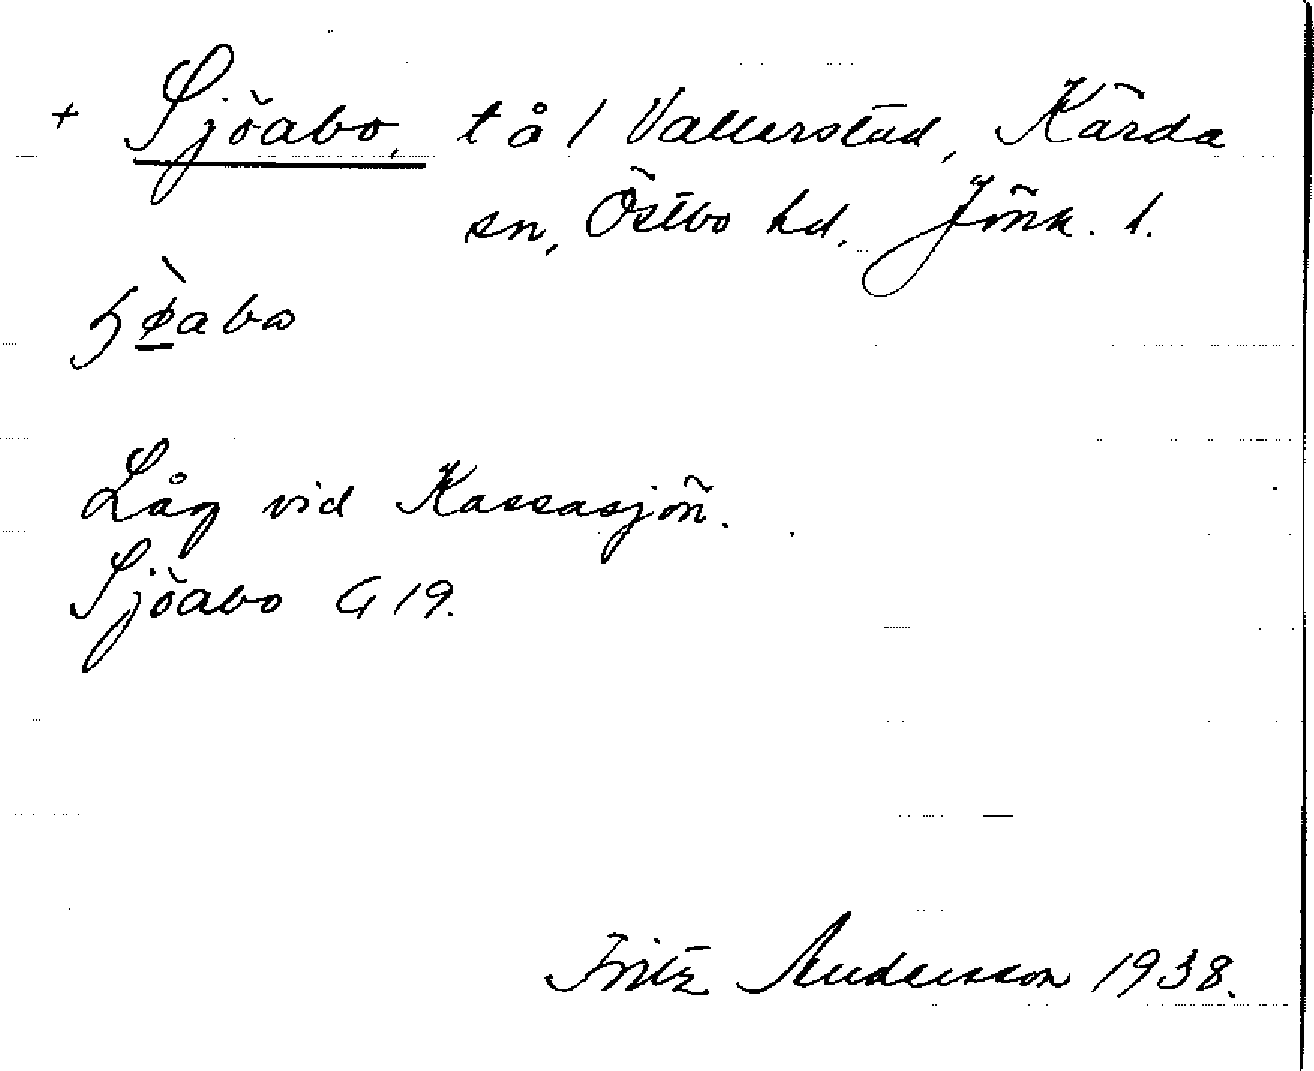 + Sjöabo, t å 1 Vallerstad, Kärda
sn, Östbo hd, Jönk. l.
ɧø̀abo
Låg vid Kassasjön.
Sjöabo G 19.
Fritz Andersson 1938.